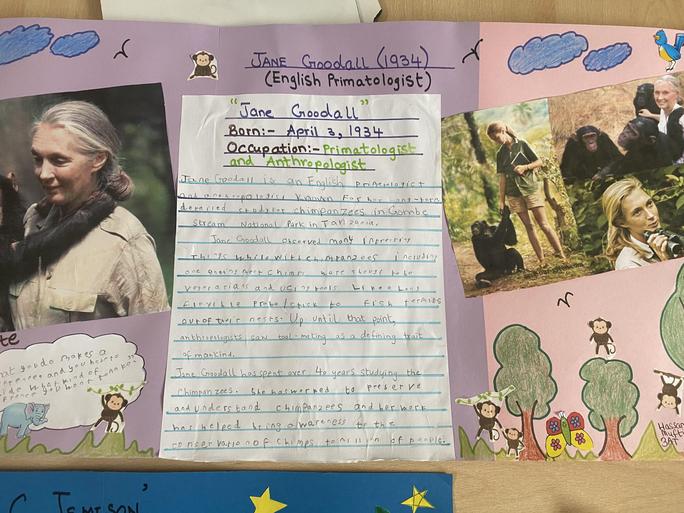 JANE GOODALL (1934)
(English Primatologist)
"Jane Goodall"
Born:- April 3, 1934
Occupation:- Primatologist
and Anthropologist
Jane Goodall is an English
and known for her
detailed chimpanzees in Gombe
stream National Park in Tanzania.
Jane Goodall observed many
things while with chimpanzees including
one chimps were
and using tools.
flexible Probe/stick to Fish termites
out of their nests. Up until that point,
anthropologists saw tool-making as a defining trait
of mankind.
Jane Goodall has spent over 40 years studying the
Chimpanzees. She has worked to preserve
and understand chimpanzees and her work
has helped bring awareness to the
conservation of chimps to million of people.
what you do makes a
and you have to
what kind of
you want to make
Hassan
3AT
C. JEMISON'